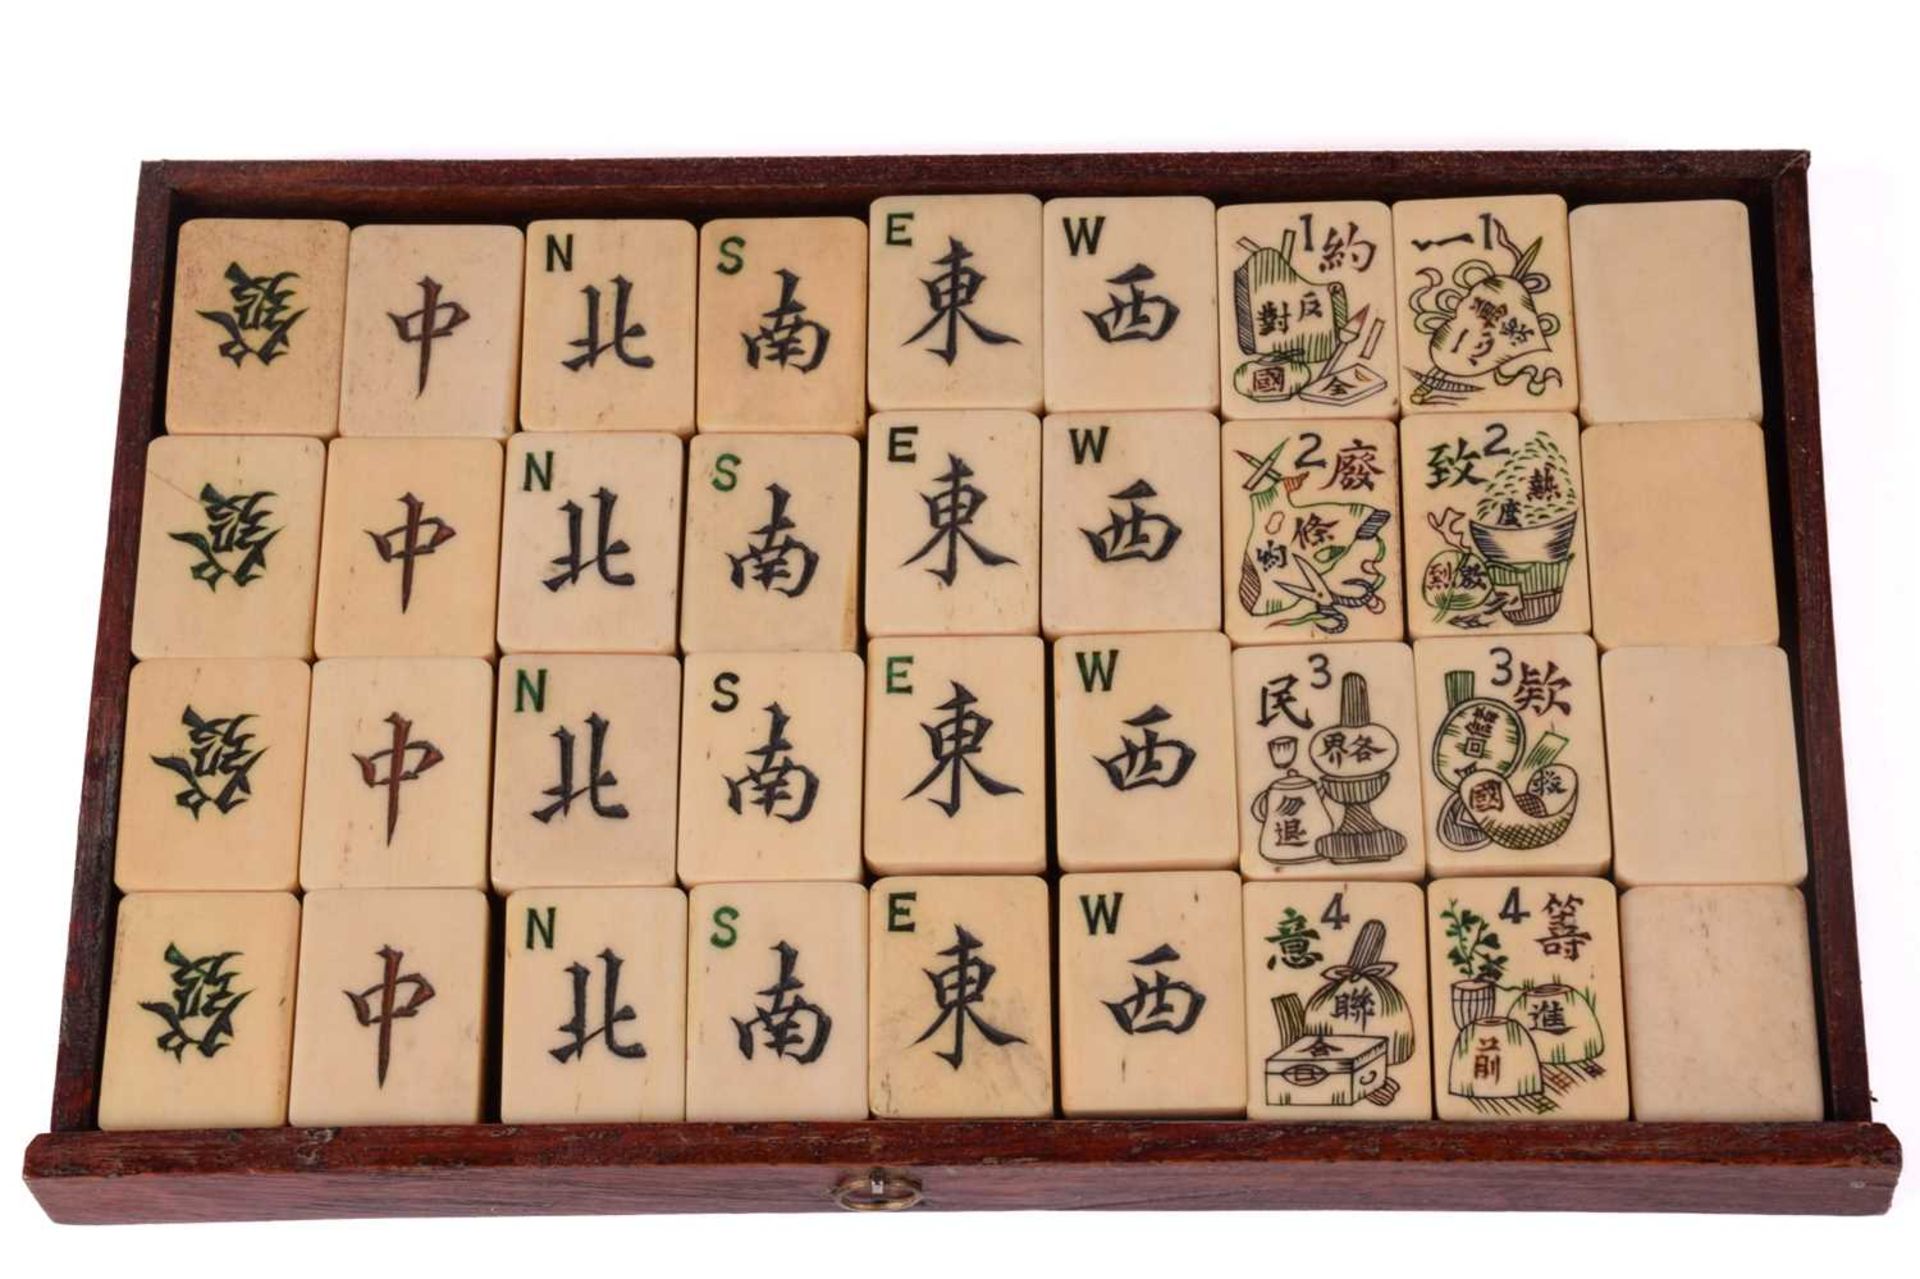 發 中 N 北 S 南 E 東 W 西 1 約 對 反 國 全 一 1
發 中 N 北 S 南 E 東 W 西 2 廢 條 約 致 2 熱 度 到 激
發 中 N 北 S 南 E 東 W 西 民 3 界 各 勿 退 3 欵 回 國
發 中 N 北 S 南 E 東 W 西 意 4 聯 合 4 籌 進 前